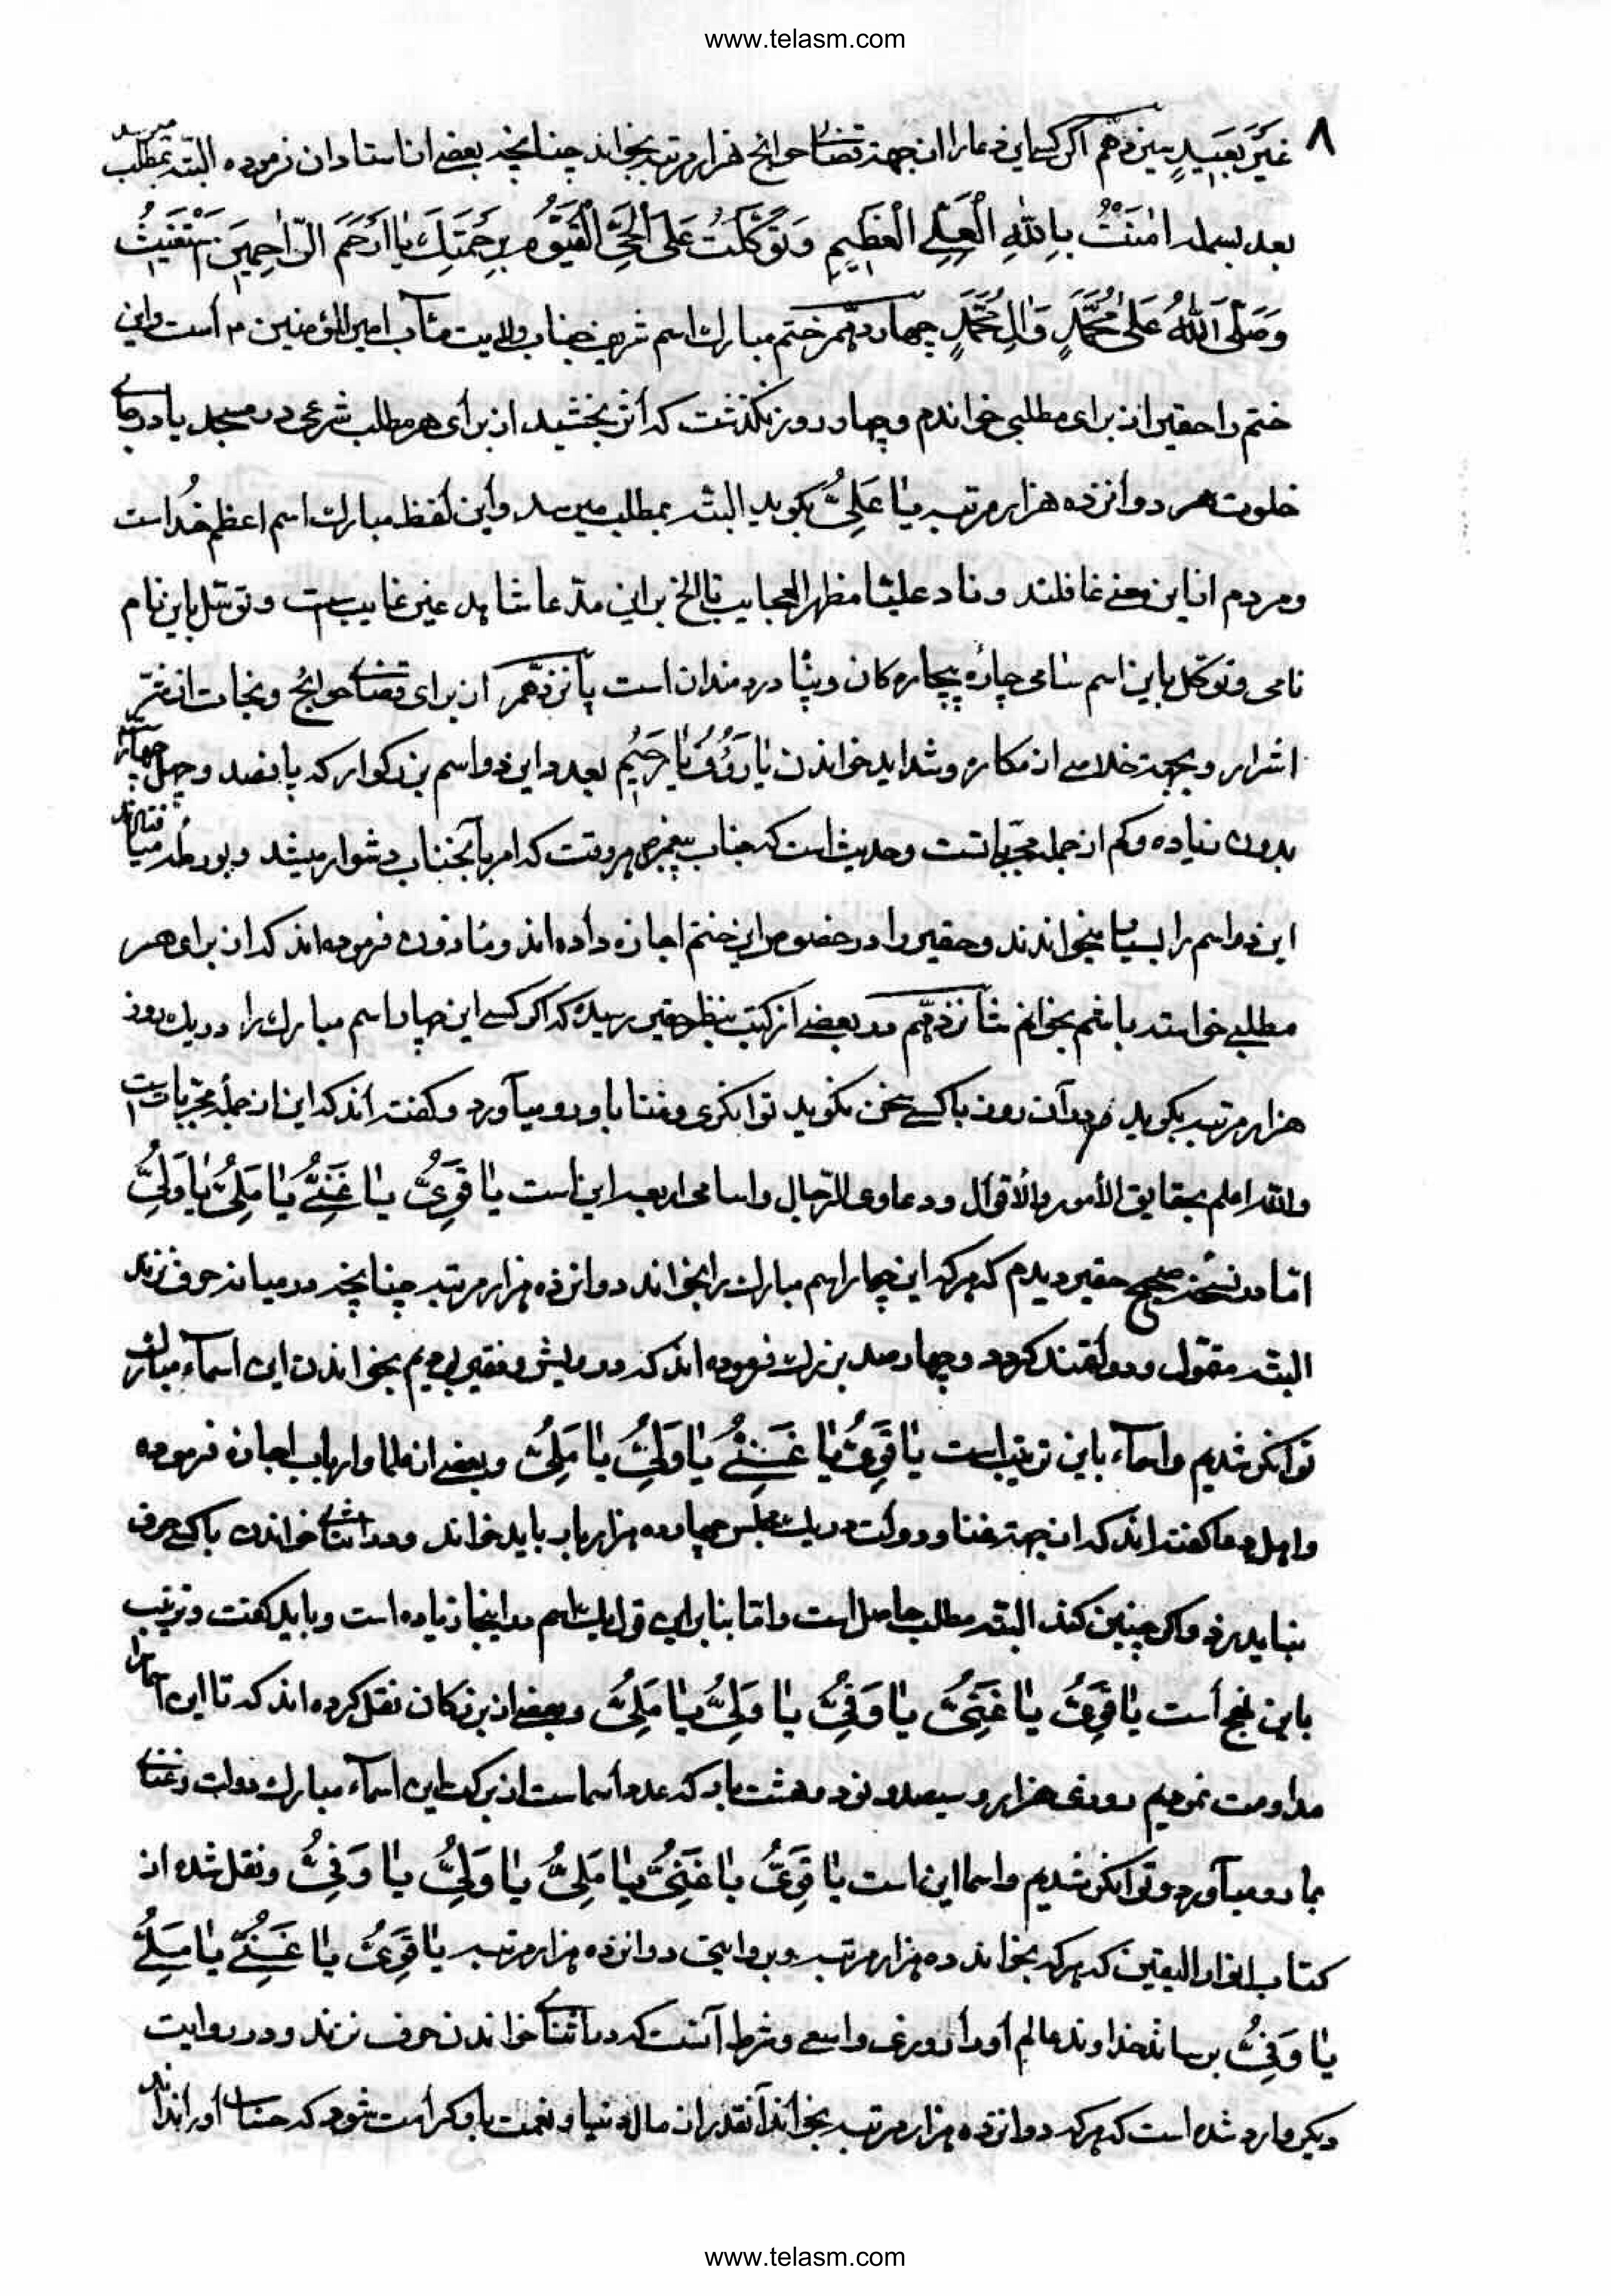 www.telasm.com
۸
غَیْرَ بَعیدٍ سیزدهم اگر کسی این دعا را از جهة قضای حوائج هزار مرتبه بخواند چنانچه بعضی از استادان فرموده البته بمطلب میرسد
بعد بسمله امَنْتُ بِاللهِ الْعَلِیِّ الْعَظیمِ وَتَوَکَّلْتُ عَلَی الْحَیِّ الْقَیّوُمِ بِرَحْمَتِكَ یا اَرْحَمَ الرّاحِمینَ اَسْتَغیثُ
وَصَلَّی اللهُ عَلی مُحَمَّدٍ وَالِ مُحَمَّدٍ چهاردهم ختم مبارك اسم شریف جناب ولایت مئآب امیرالمؤمنین ۴ است واین
ختم را حقیر از برای مطلبی خواندم وچهار روز نگذشت که اثر بخشید از برای هر مطلب شرعی در مسجد یا در جای
خلوت هر دوانزده هزار مرتبه یا عَلِیُّ بگوید البته بمطلب میرسد واین لفظ مبارك اسم اعظم خُدا است
ومردم از این معنی غافلند وناد علیّا مظهر العجایب تا الخ بر این مدّعا شاهد غیر غایب ست وتوسّل باین نام
نامی وتوکّل باین اسم سامی چارهٔ بیچاره کان و درد مندان است پانزدهم از برای قضای حوائج ونجات از شرّ
اشرار وبجهة خلاصی از مکاره وشداید خواندن یا رَؤُفُ یا رَحیُم بعدد این دو اسم بزرکوار که پانصد وچهل چهار
بدون زیاده وکم از جمله مجرّباتست وحدیث است که جناب پیغمبر ص هر وقت که امر بآنجناب دشوار میشد
این دو اسم را بسیار میخواندند وحقیر را در خصوص این ختم اجازه داده اند ومأذون فرموده اند که از برای هر
مطلبی خواسته باشم بخوانم شانزدهم در بعضی از کتب بنظر حقیر رسیده که اگر کسی این چهار اسم مبارك را در یك روز
هزار مرتبه بگوید و در آن روز با کسی سخن نگوید توانکری وغنا باو رو میآورد وگفته اند که این از جمله مجرّبات ست
والله اعلم بحقایق الأمور والأقوال ودعاوی الرّجال واسامی اربعه این است یا قَوِیُّ یا غَنِیُّ یا مَلِیُّ یا وَلِیُّ
امّا در نسخهٔ صحیح حقیر دیدم که هر که این چهار اسم مبارك را بخواند دوانزده هزار مرتبه چنانچه در میانه حرف نزند
البته متموّل ودولتمند کردد وچهارصد بزرك فرموده اند که درویش وفقیر بودیم بخواندن این اسمآء مبارك
توانکر شدیم واسمآء باین ترتیب است یا قَوِیُّ یا غَنِیُّ یا وَلِیُّ یا مَلِیُّ وبعضی از علما وارباب اجازه فرموده
واهل دعا گفته اند که از جهة غنا ودولت در یك مجلس چهارده هزار بار باید خواند ودر اثنای خواندن با کسی حرف
نباید زد واگر چنین کند البته مطلب حاصل است وامّا بنابراین قول یك اسم در اینجا زیاده است وباید گفت وترتیب
باین نهج است یا قَوِیُّ یا غَنِیُّ یا وَفِیُّ یا وَلِیُّ یا مَلِیُّ وبعضی از بزرکان نقل کرده اند که تا این اسما را
مداومت نمودیم روزی هزار و سیصد و نود وهشت بار که عدد اسماست از برکت این اسمآء مبارك دولت وغنای
بما رو میآورد وتوانکر شدیم واسما این است یا قَوِیُّ یا غَنِیُّ یا مَلِیُّ یا وَلِیُّ یا وَفِیُّ ونقل شده از
کتاب انوار الیقین که هر که بخواند ده هزار مرتبه وبروایتی دوانزده هزار مرتبه یا قَوِیُّ یا غَنِیُّ یا مَلِیُّ
یا وَفِیُّ برساند خداوند عالم اورا روزی واسعی وشرط آنست که در اثنای خواندن حرف نزند ودر روایت
دیکر وارد شده است که هر که دوانزده هزار مرتبه بخواند آنقدر از مال دنیا ونعمت باو کرامت شود که حساب اورا نداند
www.telasm.com